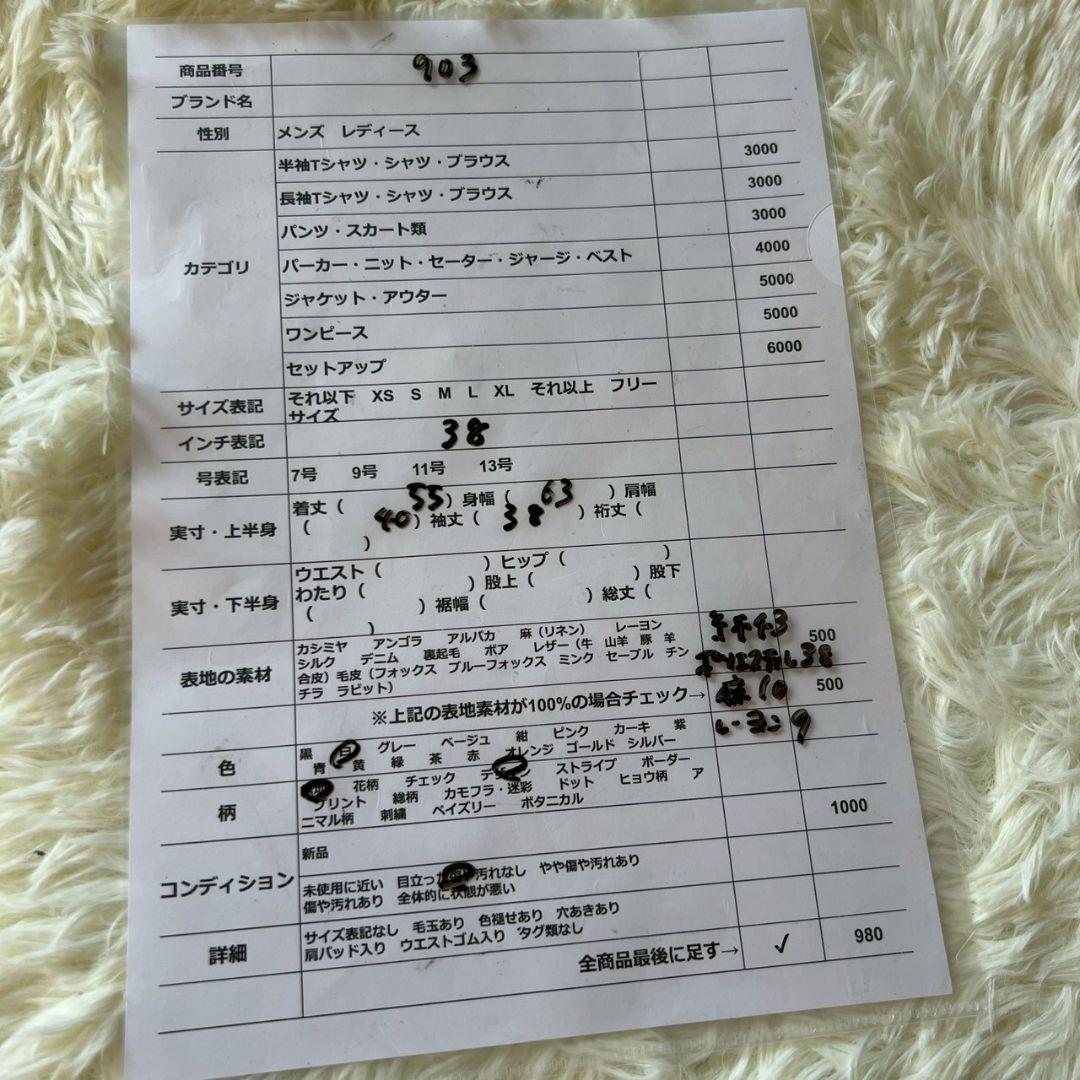 商品番号 903
ブランド名
性別 メンズ レディース
カテゴリ
半袖Tシャツ・シャツ・ブラウス 3000
長袖Tシャツ・シャツ・ブラウス 3000
パンツ・スカート類 3000
パーカー・ニット・セーター・ジャージ・ベスト 4000
ジャケット・アウター 5000
ワンピース 5000
セットアップ 6000
サイズ表記 それ以下 XS S M L XL それ以上 フリー
サイズ
インチ表記 38
号表記 7号 9号 11号 13号
実寸・上半身 着丈( 55 )身幅( 63 )肩幅
( 40 )袖丈( 38 )裄丈(
)
実寸・下半身 ウエスト( )ヒップ( )
わたり( )股上( )股下
( )裾幅( )総丈(
)
表地の素材 カシミヤ アンゴラ アルパカ 麻(リネン) レーヨン
シルク デニム 裏起毛 ボア レザー(牛 山羊 豚 羊 500
合皮)毛皮(フォックス ブルーフォックス ミンク セーブル チン ポリエステル38
チラ ラビット)
※上記の表地素材が100%の場合チェック→ 麻10 500
レーヨン9
色 黒 白 グレー ベージュ 紺 ピンク カーキ 紫
青 黄 緑 茶 赤 オレンジ ゴールド シルバー
柄 花柄 チェック ストライプ ボーダー
プリント 総柄 カモフラ・迷彩 ドット ヒョウ柄 ア
ニマル柄 刺繍 ペイズリー ボタニカル
コンディション 新品 1000
未使用に近い 目立った傷や汚れなし やや傷や汚れあり
傷や汚れあり 全体的に状態が悪い
詳細 サイズ表記なし 毛玉あり 色褪せあり 穴あきあり
肩パッド入り ウエストゴム入り タグ類なし
全商品最後に足す→ ✓ 980